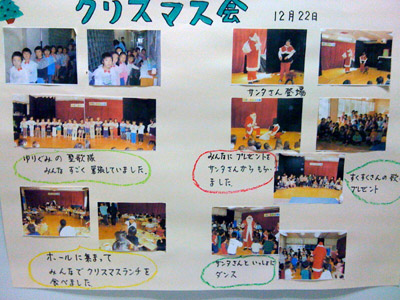 クリスマス会
12月22日
サンタさん登場
ゆりぐみの聖歌隊
みんな すごく 緊張していました。
みんなに プレゼントを
サンタさんから もらい
ました。
すくすくさんの
プレゼント
ホールに 集まって
みんなで クリスマスランチを
食べました
サンタさんと いっしょに
ダンス